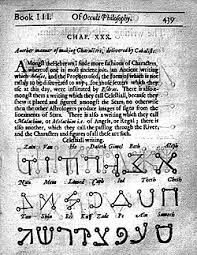 Book III. Of Occult Philosophy. 439
CHAP. XXX.
Another manner of making Characters, delivered by Cabalists.
Amongst the Hebrews I finde more fashions of Characters,
whereof one is most ancient, viz. an Ancient writing
which Moses, and the Prophets used, the form of which is not
rashly to be discovered to any, for those Letters which they
use at this day, were instituted by Esdras. There is also a-
mongst them a writing which they call Celestiall, because
they shew it placed and figured amongst the Stars, no otherwise
then the other Astrologers produce images of signs from the
lineaments of Stars. There is also a writing which they call
Malachim, or Melachim, of Angels, or Regal; there is
also another, which they call the passing through the River,
and the Characters and figures of all these are such.
Celestiall writing.
Zain Vau He Daleth Gimel Beth Aleph
Nun Mem Lamed Caph Jod Theth Cheth
Tau Shin Res Kuff Zade Pe Ain Samech